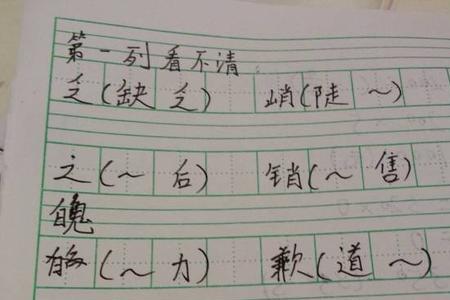 第一列看不清
乏(缺乏) 峭(陡~)
之(~后) 销(~售)
魄
(~力) 歉(道~)